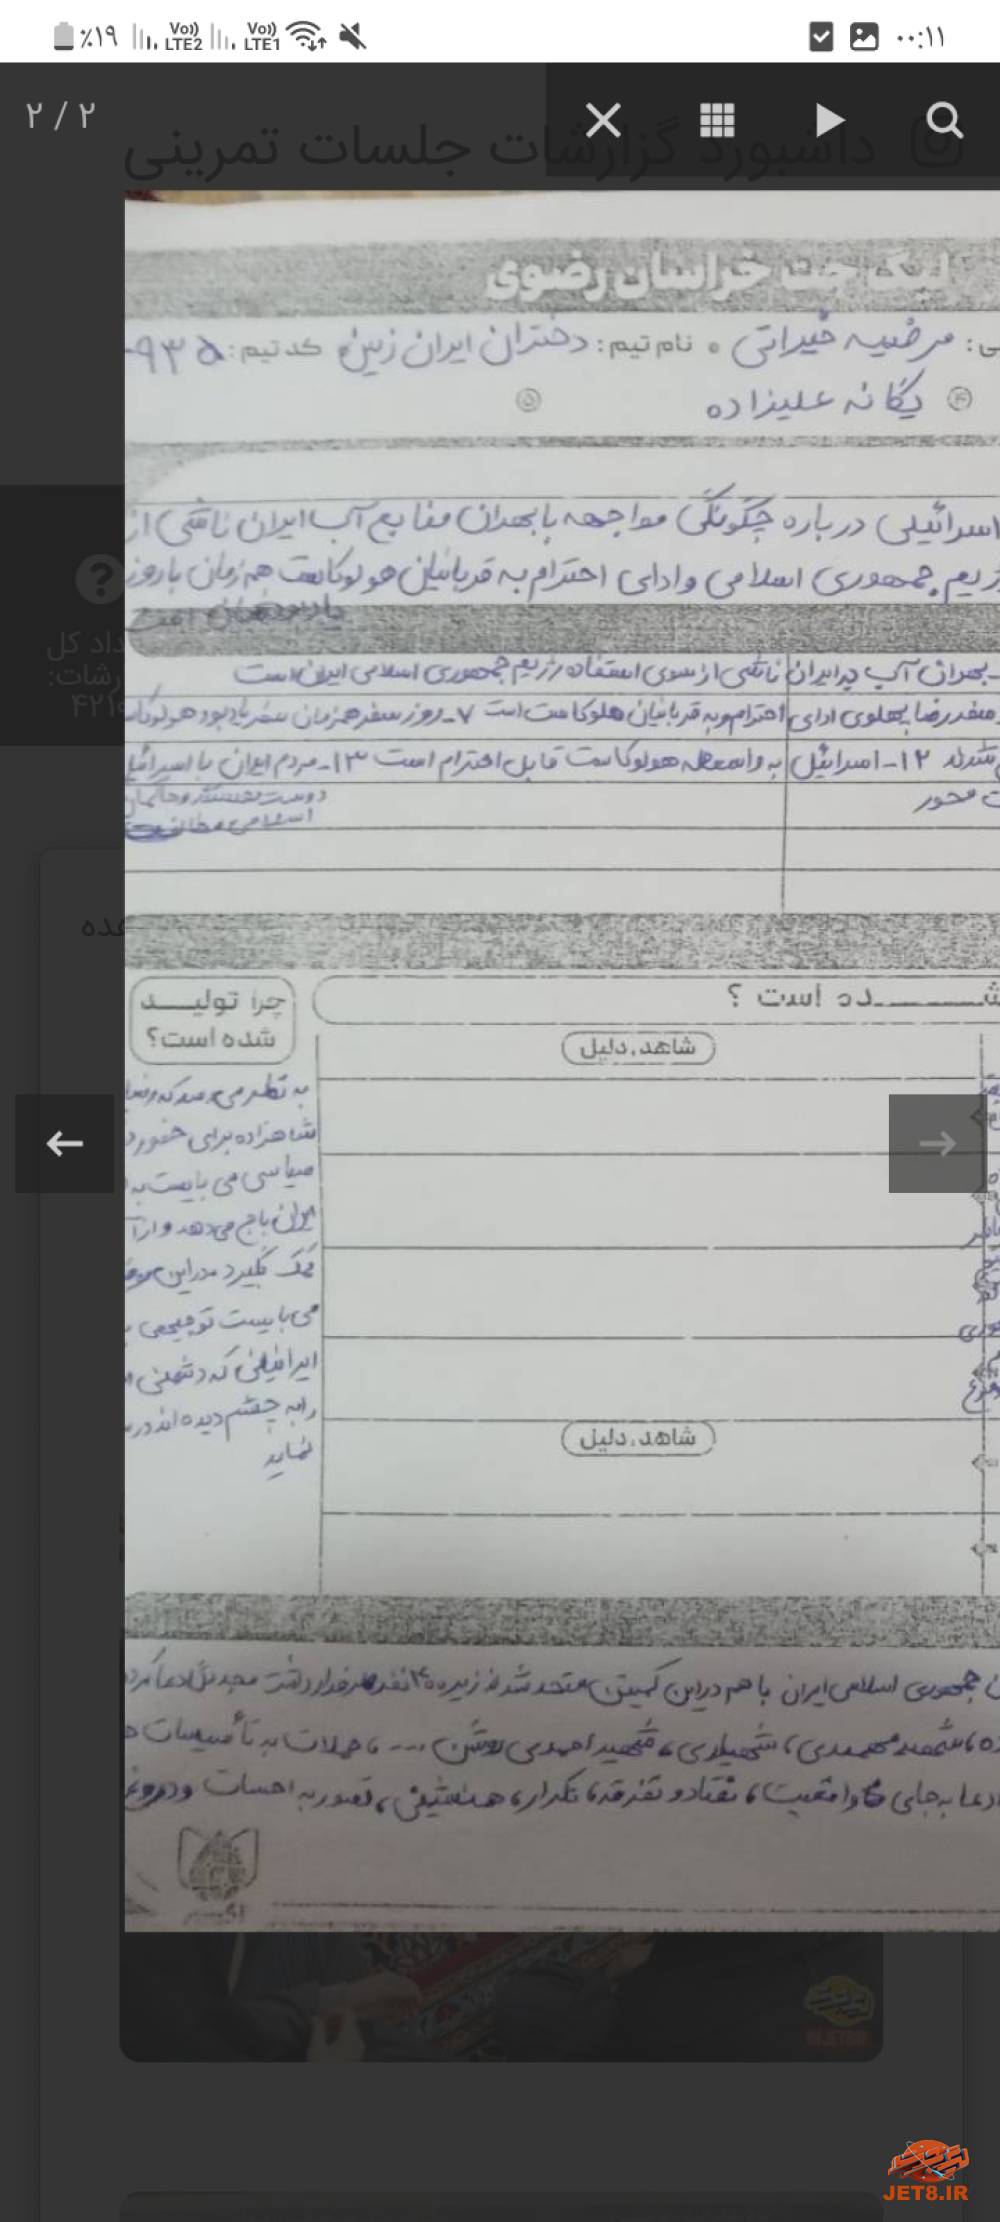 ٪۱۹ Vo)) LTE2 Vo)) LTE1 ۰۰:۱۱
۲ / ۲
داشبورد گزارشات جلسات تمرینی
لیگ جت خراسان رضوی
ی: مرضیه خیراتی • نام تیم: دختران ایران زمین کد تیم: ۹۳۵
۴ یگانه علیزاده ۵
اسرائیلی درباره چگونگی مواجهه با بحران منابع آب ایران ناشی از
رژیم جمهوری اسلامی و ادای احترام به قربانیان هولوکاست همزمان با روز
داد کل
رشات:
۴۲۱
بحران آب در ایران ناشی از سوی استفاده رژیم جمهوری اسلامی ایران است
سفر رضا پهلوی ادای احترام به قربانیان هلوکاست است ۷- روز سفر همزمان سفر یادبود هولوکا
شدند ۱۲- اسرائیل به واسطه هولوکاست قابل احترام است ۱۳- مردم ایران با اسرائیل
ت محور دوست هستند و حاکمان
اسلامی مخالف
عده
شـــده است؟
چرا تولیــد
شده است؟
شاهد، دلیل
به نظر می رسد که رضا
شاهزاده برای حضور د
سیاسی می بایست به
ایران باج می دهد و از آ
کمک بگیرد در این
می بایست توجیهی
ایرانیانی که دشمنی
را به چشم دیده اند در
نماید
شاهد، دلیل
جمهوری اسلامی ایران با هم در این کمپین متحد شدند زیر ۴۰۰ نفر طرفدار داشت مجدداً ادعا کرد
شهید احمدی روشن .... ، حملات به تأسیسات
ادعا به جای واقعیت، تضاد و تفرقه، تکرار، همنشینی، تصویر، احساسات و دروغ
اکسیر
JET8.IR